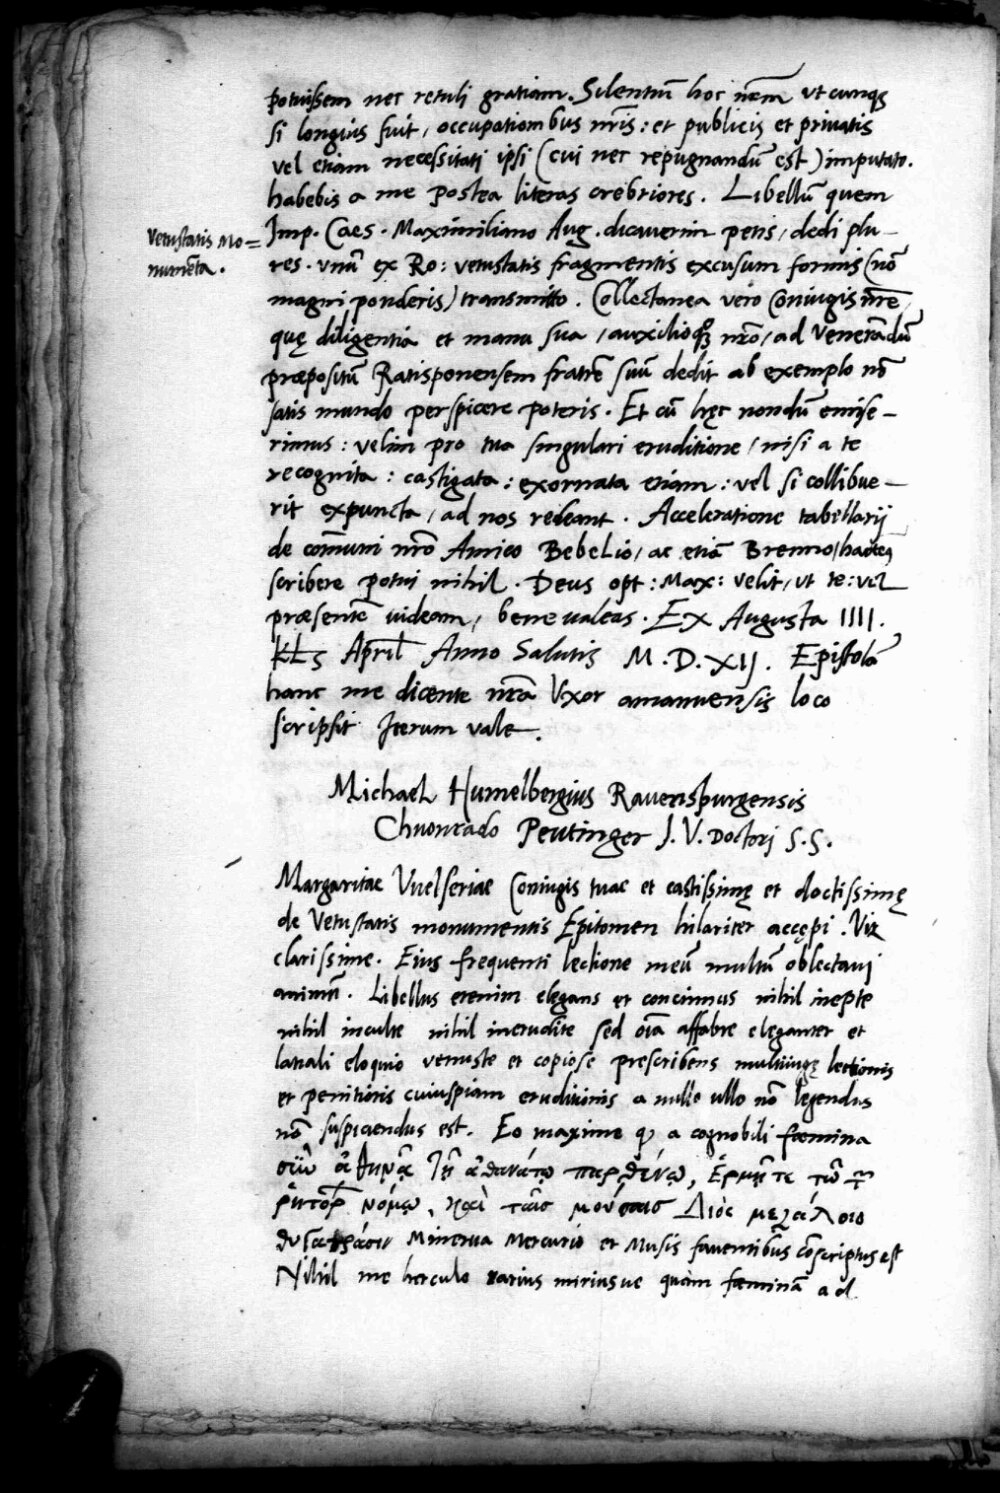 potuissem nec retuli gratiam. Silentiũ hoc nr̃m ut cunqꝫ
si longius fuit, occupationibus nr̃is: et publicis et priuatis
vel etiam necessitati ipsi (cui nec repugnandũ est) imputato.
habebis a me postea literas crebriores. Libellũ quem
Vetustatis Mo=
numẽta.
Imp. Caes. Maximiliano Aug. dicauerim petis, dedi plu-
res. vnũ ex Ro: vetustatis fragmentis excusum formis (nõ
magni ponderis) transmitto. Collectanea vero Coniugis nr̃e,
quę diligentia et manu sua, auxilioqꝫ nr̃o, ad Venerãdũ
præpositũ Ratisponensem fratrẽ suũ dedit ab exemplo nõ
satis mundo perspicere poteris. Et cũ hęc nondũ emise-
rimus: velim pro tua singulari eruditione, nisi a te
recognita: castigata: exornata etiam: vel si collibue-
rit expuncta, ad nos redeant. Acceleratione tabellarij
de com̃uni nr̃o Amico Bebelio, ac etiã Brenno, hacteꝰ
scribere potui nihil. Deus opt: Max: velit, ut te: vel
præsentẽ uideam, bene ualeas. Ex Augusta IIII.
KLs April Anno Salutis M.D.XIJ. Epistolã
hanc me dicente nr̃a Vxor amanuensis loco
scripsit Iterum vale.
Michael Humelbergius Rauenspurgensis
Chuonrado Peutinger J.V. Doctorj S.S.
Margaritae Vuelseriae Coniugis tuae et castissimę et doctissimę
de Vetustatis monumentis Epitomen hilariter accępi. Vir
clarissime. Eius frequenti lectione meũ multũ oblectaui
animũ. Libellus etenim elegans et concinnus nihil inepte
nihil inculte nihil inerudite sed oĩa affabre eleganter et
latiali eloquio venuste et copiose prescribens multiiugę lectionis
et penitioris cuiuspiam eruditionis a nullo ullo nõ legendus
nõ suspiciendus est. Eo maxime ꝙ a cognobili fœmina
σὺν ἀθηνᾷ τῇ ἀθανάτῳ παρθένῳ, Ἑρμῇ τε τῶν
ῥητορ νόμῳ, καὶ ταῖς μούσαις Διὸς μεγάλοιο
θυγατράσιν Minerua Mercurio et Musis fauentibus cõscriptus est
Nihil me hercule rarius miriusue quàm fœminã ad